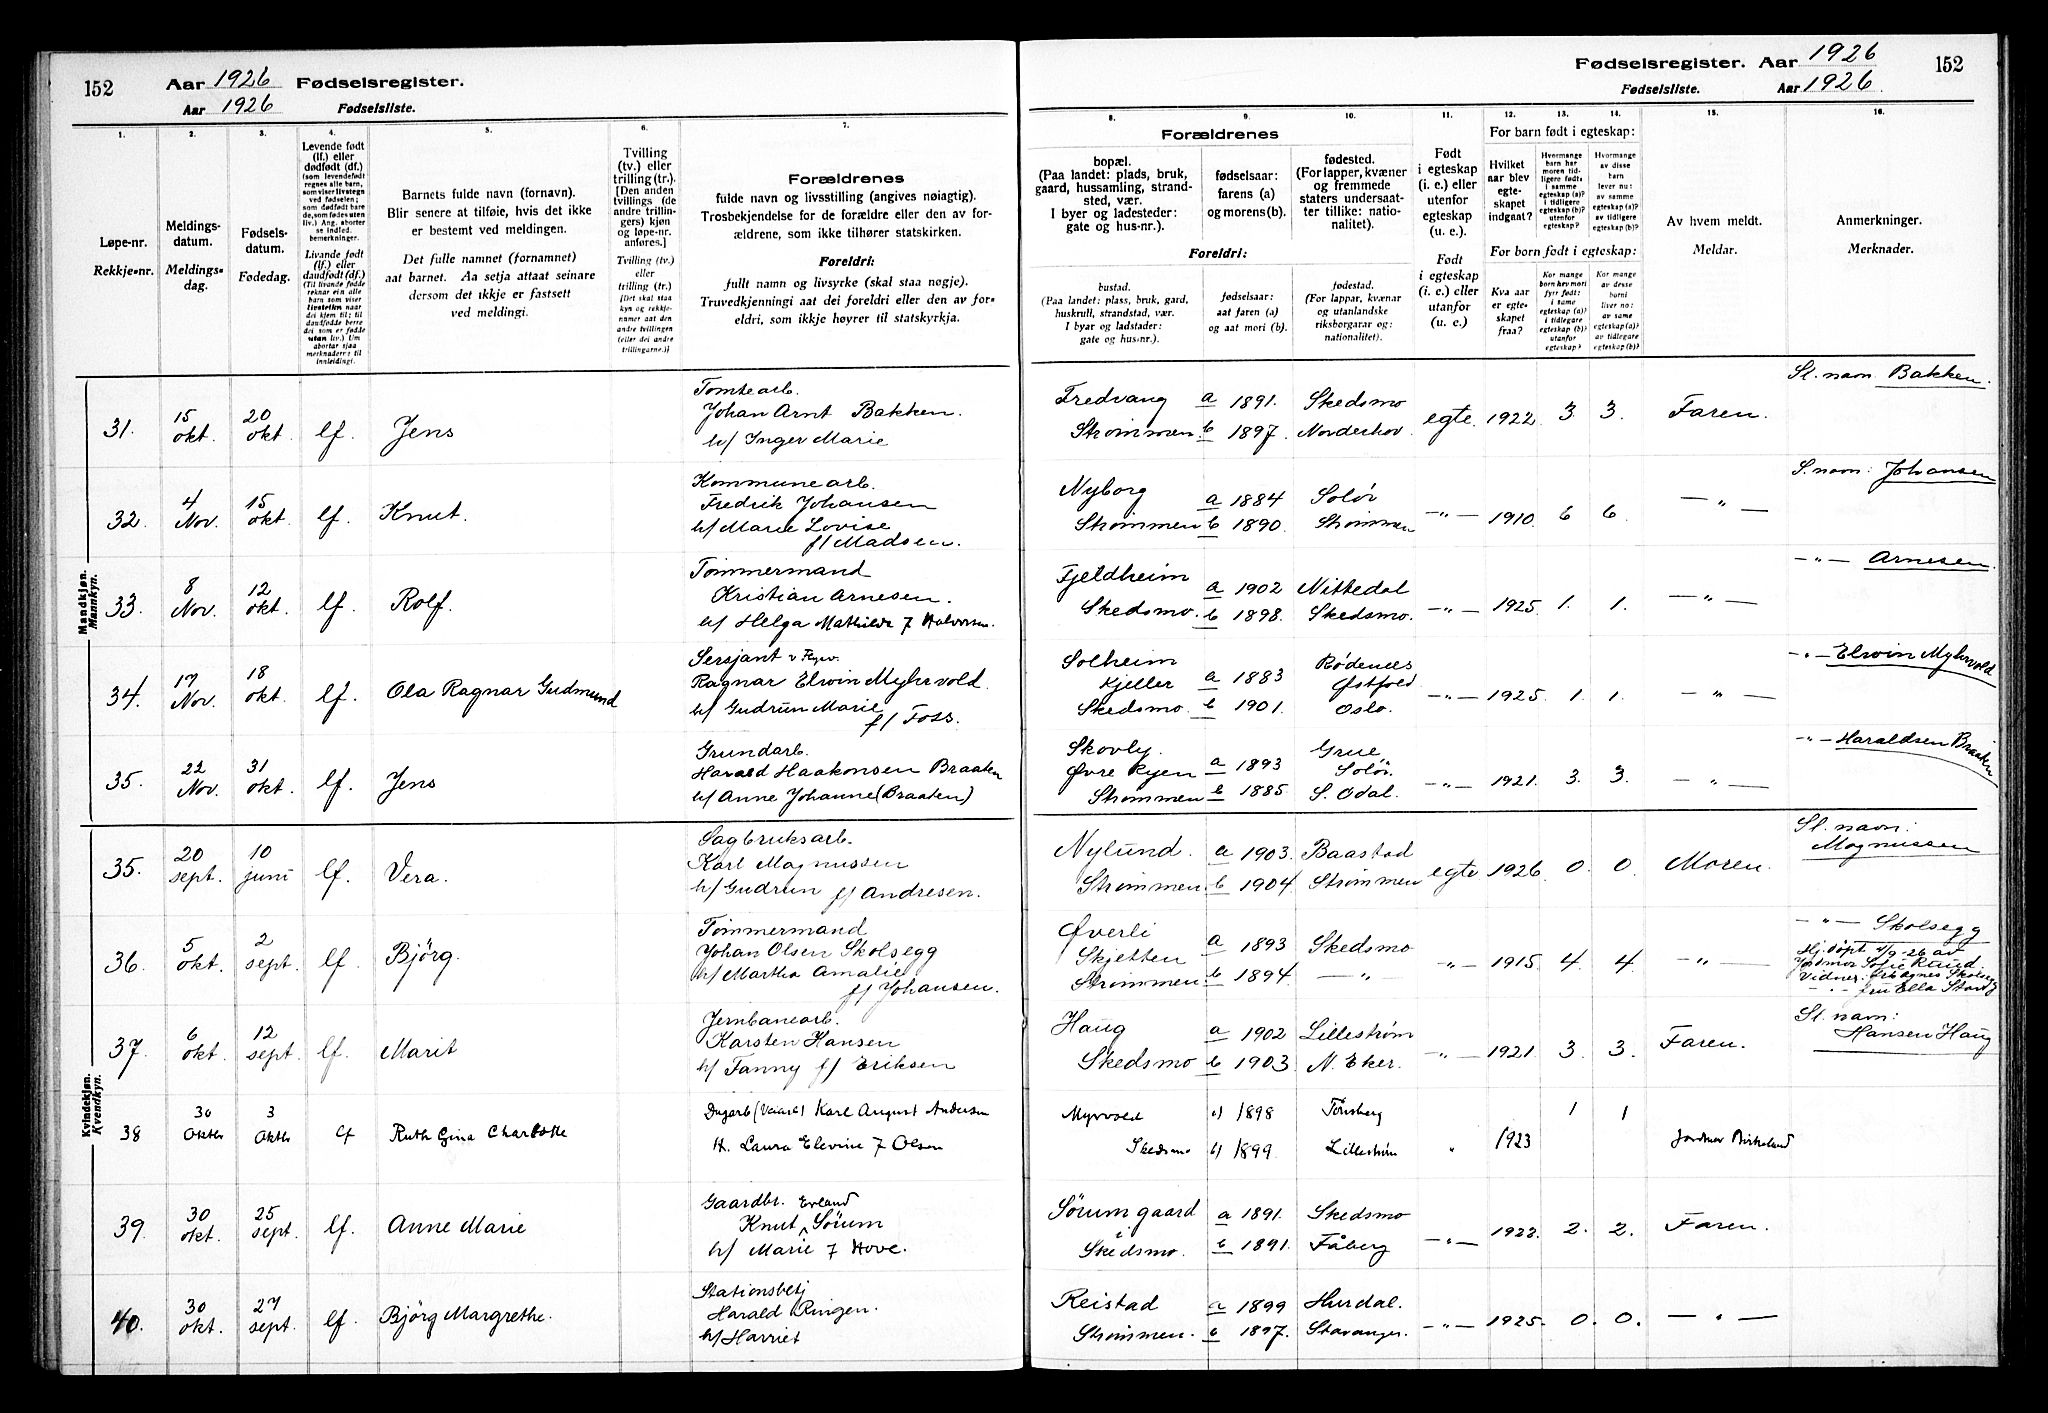 152
Aar 1926 Fødselsregister.
Aar 1926 Fødselsliste.
1. 2. 3. 4. 5. 6. 7.
Løpe-nr.
Rekkje-nr.
Meldings-
datum.
Meldings-
dag.
Fødsels-
datum.
Fødedag.
Levende født
(lf.) eller
dødfødt (df.)
Livande fødd
(lf.) eller
daudfødt (df.)
Barnets fulde navn (fornavn).
Blir senere at tilføie, hvis det ikke
er bestemt ved meldingen.
Det fulle namnet (fornamnet)
aat barnet. Aa setja attaat seinare
dersom det ikkje er fastsett
ved meldingi.
Tvilling
(tv.) eller
trilling (tr.).
[Den anden
tvillings (de
andre trillin-
gers) kjøn
og løpe-nr.
anføres.]
Tvilling (tv.)
eller
trilling (tr.)
[Det skal staa
kyn og rekkje-
numer aat den
andre tvillingen
(eller dei andre
trillingarne.)]
Forældrenes
fulde navn og livsstilling (angives nøiagtig).
Trosbekjendelse for de forældre eller den av for-
ældrene, som ikke tilhører statskirken.
Foreldri:
fullt namn og livsyrke (skal staa nøgje).
Truvedkjenningi aat dei foreldri eller den av for-
eldri, som ikkje høyrer til statskyrkja.
Mandkjøn.
Mannkyn.
31. 15 okt. 20 okt. lf. Jens
Tomtearb.
Johan Arnt Bakken.
h/ Inger Marie
32. 4 Nov. 15 okt. lf. Knut.
Kommunearb.
Fredrik Johansen
h/ Marie Lovise
f/ Madsen.
33. 8 Nov. 12 okt. lf. Rolf.
Tømmermand
Kristian Arnesen.
h/ Helga Mathilde f Halvorsen.
34. 17 Nov. 18 okt. lf. Ola Ragnar Gudmund
Sersjant v Flyv.
Ragnar Elvin Myhrvold.
h/ Gudrun Marie
f/ Foss.
35. 22 Nov. 31 okt. lf. Jens
Grundarb.
Harald Haakonsen Braaten
h/ Anne Johanne (Braaten)
Kvindekjøn.
Kvendkyn.
35. 20 sept. 10 juni lf. Vera.
Sagbruksarb.
Karl Magnussen
h/ Gudrun f/ Andresen.
36. 5 okt. 2 sept. lf. Bjørg.
Tømmermand
Johan Olsen Skolsegg
h/ Martha Amalie
f/ Johansen.
37. 6 okt. 12 sept. lf. Marit
Jernbanearb.
Karsten Hansen
h/ Fanny f/ Eriksen
38 30 Oktbr 3 Oktbr lf Ruth Gina Charlotte
Karl August Andersen
H. Laura Elevine f Olsen
39. 30 okt. 25 sept. lf. Anne Marie
Gaardbr. Evland
Knut Sörum
h/ Marie f Hove.
40. 30 okt. 27 sept. lf. Bjørg Margrethe.
Stationsbetj
Harald Ringen.
h/ Harriet
Fødselsregister. Aar 1926 152
Fødselsliste. Aar 1926.
8. 9. 10. 11. 12. 13. 14. 15. 16.
Forældrenes
bopæl.
(Paa landet: plads, bruk,
gaard, hussamling, strand-
sted, vær.
I byer og ladesteder:
gate og hus-nr.).
fødselsaar:
farens (a)
og morens (b).
fødested.
(For lapper, kvæner
og fremmede
staters undersaat-
ter tillike: natio-
nalitet).
Foreldri:
bustad.
(Paa landet: plass, bruk, gard,
huskrull, strandstad, vær.
I byar og ladstader:
gate og hus-nr.).
fødselsaar:
aat faren (a)
og aat mori (b).
fødestad.
(For lappar, kvænar
og utanlandske
riksborgarar og:
nationalitet).
Født
i egteskap
(i. e.) eller
utenfor
egteskap
(u. e.).
Født
i egteskap
(i. e.) eller
utanfor
(u. e.)
For barn født i egteskap:
Hvilket
aar blev
egte-
skapet
indgaat?
Hvormange
barn har
moren tid-
ligere født:
i samme
egteskap (a)?
i tidligere
egteskap (b)?
utenfor
egteskap?
Hvormange
av disse
barn
lever nu:
av samme
egteskap (a)?
av tidligere
egteskap (b)?
For born født i egteskap:
Kva aar
er egte-
skapet
fraa?
Kor mange
born hev mori
fyrr født:
i same
egteskap (a)?
i tidlegare
egteskap (b)?
utanfor
egteskap?
Kor mange
av desse
borni
liver no:
av same
egteskap (a)?
av tidlegare
egteskap (b)?
Av hvem meldt.
Meldar.
Anmerkninger.
Merknader.
Sl. navn Bakken.
Fredvang a 1891. Skedsmo
Strømmen. b 1897. Norderhov. egte. 1922. 3. 3. Faren.
S. navn: Johansen
Nyborg a 1884 Solör
Strømmen b 1890. Strømmen -"- 1910. 6 6. -"-
-"- Arnesen.
Fjeldheim a 1902 Nittedal
Skedsmo. b 1898. Skedsmo. -"- 1925. 1. 1. -"-
-"- Elvin Myhrvold
Solheim Rödenes
Kjeller a 1883 Østfold
Skedsmo. b 1901. Oslo. -"- 1925. 1. 1. -"-
-"- Haraldsen Braaten
Skovly. Grue
Øvre Ryen a 1893 Solör.
Strømmen b 1885 S. Odal. -"- 1921. 3. 3. -"-
Sl. navn:
Magnussen
Nylund. a 1903. Baastad
Strømmen b 1904. Strømmen egte 1926. 0. 0. Moren.
-"- Skolsegg
Hj. døpt 4/9-26 av
Jordmor Sofie Ruud.
Øverli
Skjetten a 1893 Skedsmo
Strømmen. b 1894. -"- -"- 1915. 4. 4. -"-
Sl. navn:
Hansen Haug
Haug a 1902 Lillestrøm
Skedsmo b 1903 N. Eker. -"- 1921. 3. 3. Faren.
Myrvold a) 1898 Tönsberg 1 1
Skedsmo b) 1899 Lillestrøm " 1923 Jordmor Birkelund
Sörum gaard a 1891. Skedsmo
i Skedsmo. b 1891. Fåberg -"- 1922. 2. 2. Faren.
Reistad a 1899 Hurdal.
Strømmen. b 1897. Stavanger. -"- 1925. 0. 0. -"-